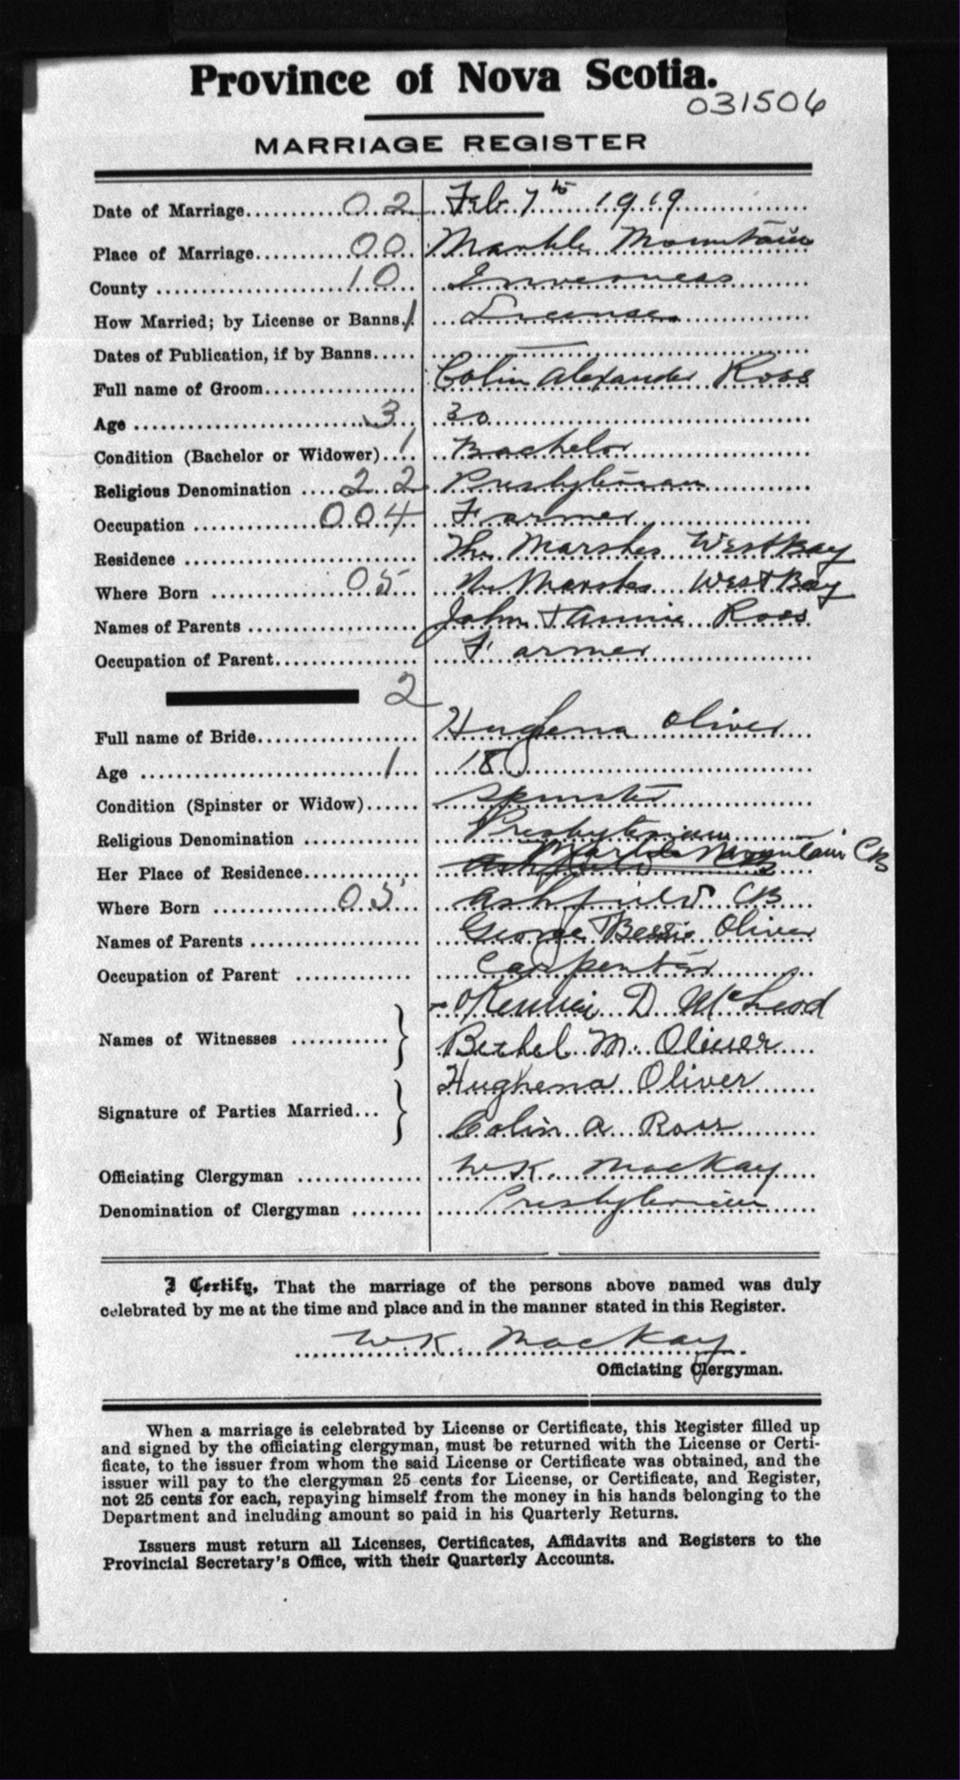 Province of Nova Scotia.
031506
MARRIAGE REGISTER
Date of Marriage.......... 02 Feb. 7th 1919
Place of Marriage.......... 00 Marble Mountain
County .......... 10 Inverness
How Married; by License or Banns. 1 License
Dates of Publication, if by Banns..... —
Full name of Groom.......... Colin Alexander Ross
Age .......... 3 30
Condition (Bachelor or Widower).... 1 Bachelor
Religious Denomination .... 22 Presbyterian
Occupation .......... 004 Farmer
Residence .......... The Marshes West Bay
Where Born .......... 05 The Marshes West Bay
Names of Parents .......... John & Annie Ross
Occupation of Parent.......... Farmer
2
Full name of Bride.......... Hughena Oliver
Age .......... 1 18
Condition (Spinster or Widow)...... Spinster
Religious Denomination .......... Presbyterian
Her Place of Residence.......... Ashfield CB Marble Mountain CB
Where Born .......... 05 Ashfield CB
Names of Parents .......... George & Bessie Oliver
Occupation of Parent .......... Carpenter
Names of Witnesses .......... D. McLeod
Bethel M. Oliver
Signature of Parties Married... Hughena Oliver
Colin A. Ross
Officiating Clergyman .......... W. K. MacKay
Denomination of Clergyman ........ Presbyterian
I Certify, That the marriage of the persons above named was duly
celebrated by me at the time and place and in the manner stated in this Register.
W. K. MacKay
Officiating Clergyman.
When a marriage is celebrated by License or Certificate, this Register filled up
and signed by the officiating clergyman, must be returned with the License or Certi-
ficate, to the issuer from whom the said License or Certificate was obtained, and the
issuer will pay to the clergyman 25 cents for License, or Certificate, and Register,
not 25 cents for each, repaying himself from the money in his hands belonging to the
Department and including amount so paid in his Quarterly Returns.
Issuers must return all Licenses, Certificates, Affidavits and Registers to the
Provincial Secretary's Office, with their Quarterly Accounts.